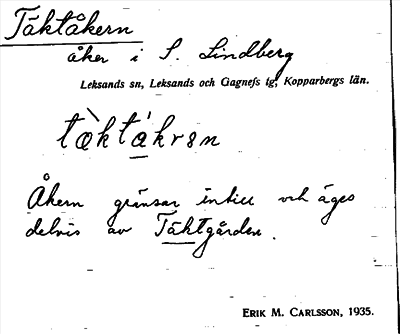 Täktåkern
åker i S. Lindberg
Leksands sn, Leksands och Gagnefs tg, Kopparbergs län.
tὰktákrən
Åkern gränsar intill och äges
delvis av Täktgården.
ERIK M. CARLSSON, 1935.